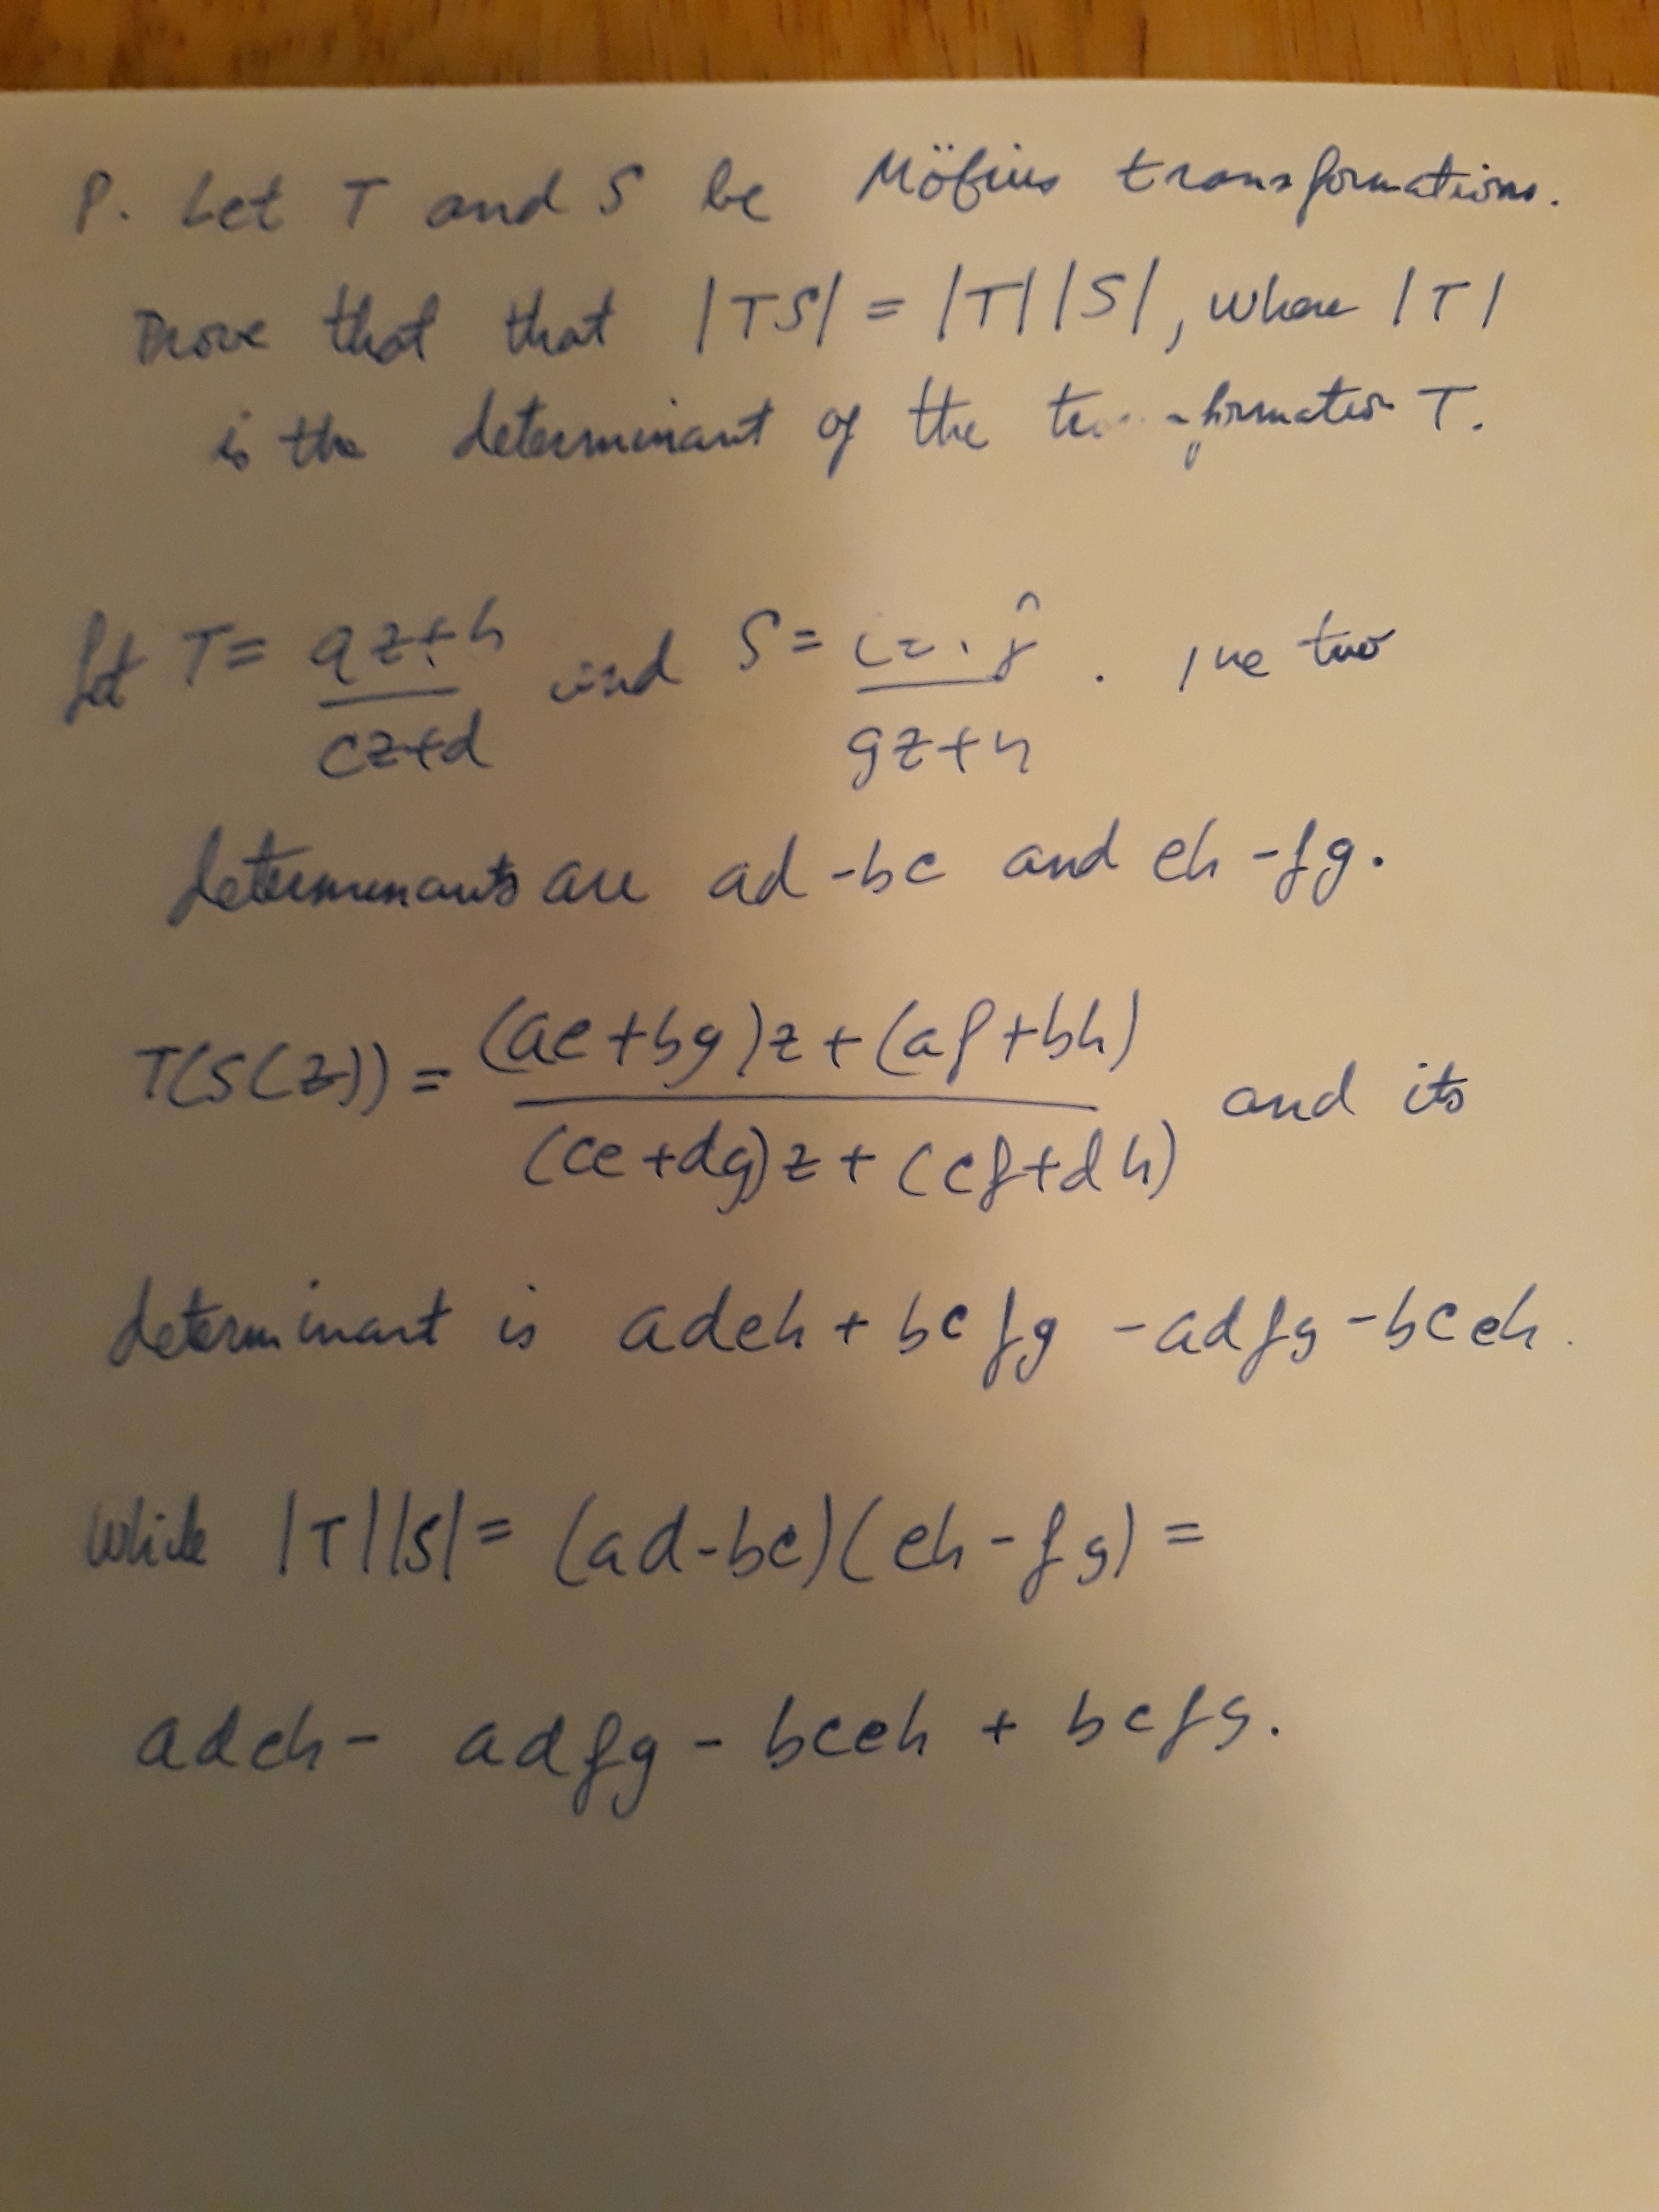 P. Let T and S be Möbius transformations.
Prove that that |TS| = |T||S|, where |T|
is the determinant of the transformation T.
Let T = (az+b)/(cz+d) and S = (ez+f)/(gz+h). The two
determinants are ad - bc and eh - fg.
T(S(z)) = ((ae+bg)z+(af+bh))/((ce+dg)z+(cf+dh)) and its
determinant is adeh + bcfg - adfg - bceh.
While |T||S| = (ad-bc)(eh-fg) =
adeh - adfg - bceh + bcfg.